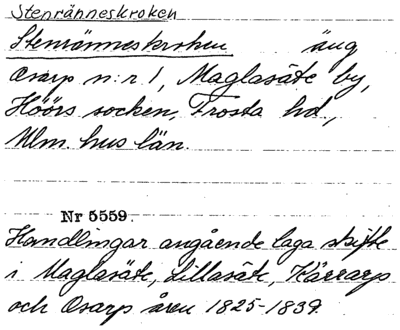 Stenränneskroken
Stenränneskroken äng
Osarp n:r 1, Maglasäte by,
Höörs socken, Frosta hd,
Mlm. hus län.
Nr 5559.
Handlingar angående laga skifte
i Maglasäte, Lillasäte, Kärrarp
och Osarp åren 1825-1839.